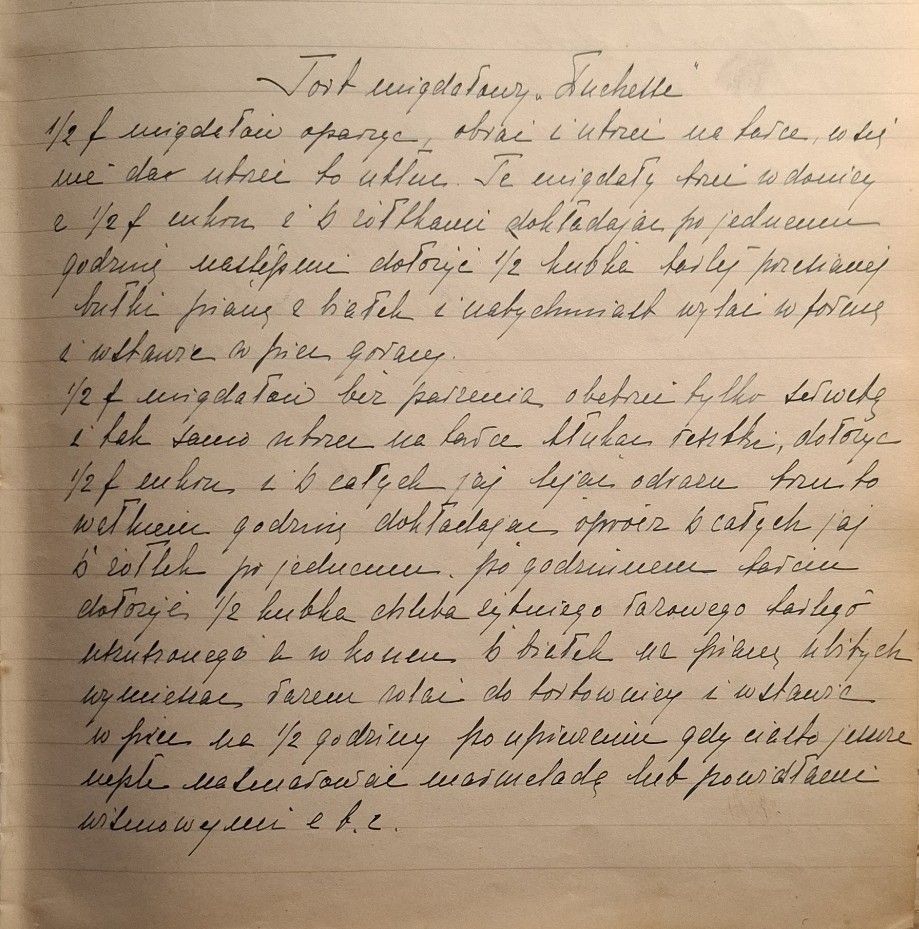 Tort migdałowy „Duchesse"
1/2 f migdałów oparzyć, obrać i utrzeć na tarce, w się
nie da utrzeć to utłuc. Te migdały trzeć w donicy
z 1/2 f cukru i 6 żółtkami dokładając po jednemu
godzinę następnie dołożyć 1/2 kubka tartej przesianej
bułki pianę z białek i natychmiast wylać w formę
i wstawić w piec gorący.
1/2 f migdałów bez parzenia obetrzeć tylko serwetą
i tak samo utrzeć na tarce tłukąc resztki, dołożyć
1/2 f cukru i 6 całych jaj lejąc odrazu trzeć to
wałkiem godzinę dokładając oprócz 6 całych jaj
6 żółtek po jednemu. po godzinnem tarciu
dołożyć 1/2 kubka chleba żytniego razowego tartego
ukruszonego a w końcu 6 białek na pianę ubitych
wymieszać razem wlać do tortownicy i wstawić
w piec na 1/2 godziny po upieczeniu gdy ciasto jeszcze
ciepłe nasmarować marmeladą lub powidłami
wiśniowymi e t.c.